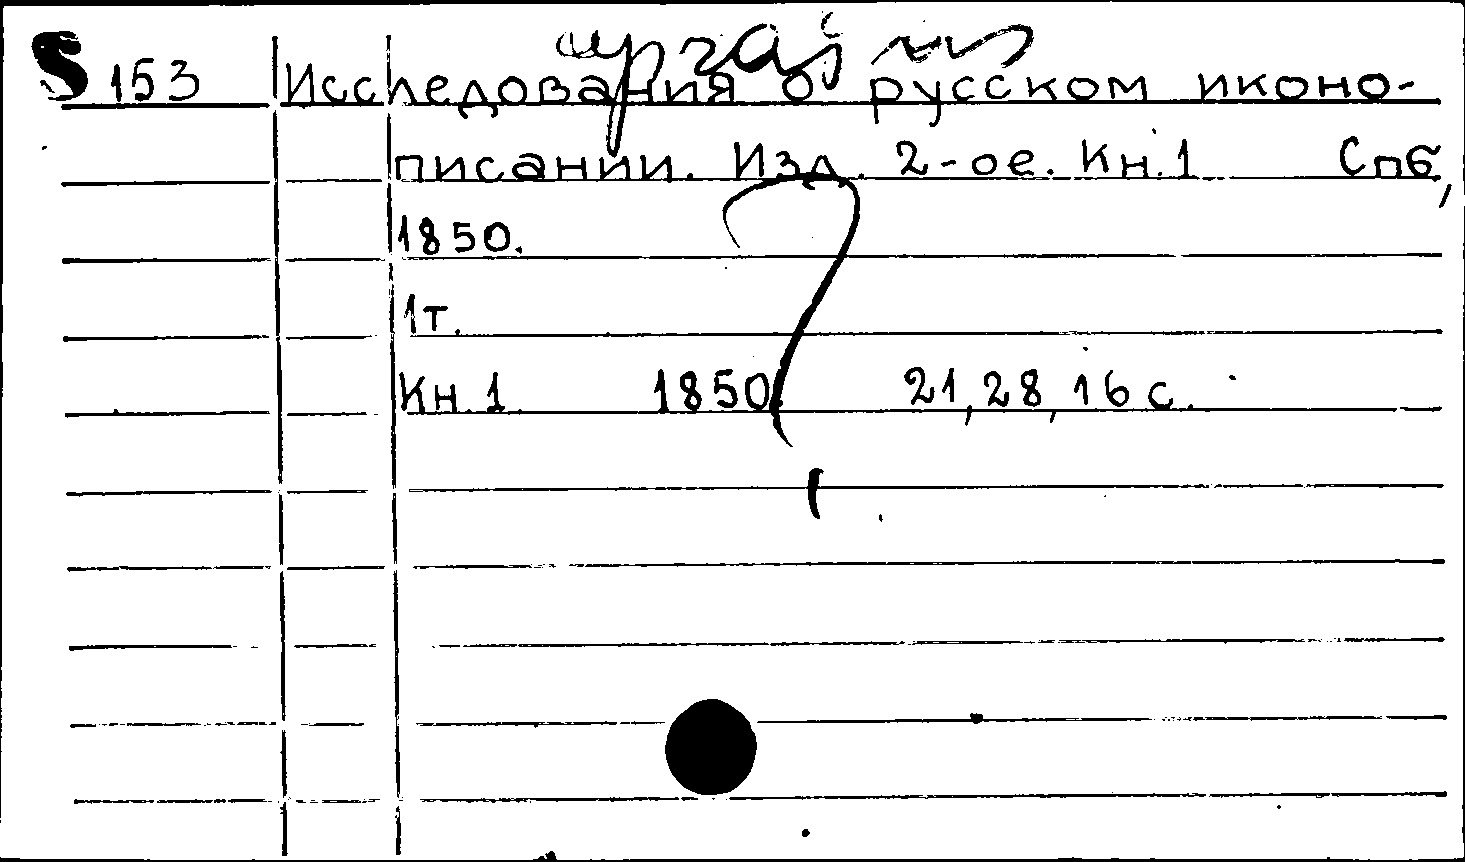 S 153 Исследования о русском иконо-
писании. Изд. 2-ое. Кн. 1 Спб,
1850.
1т.
Кн. 1 1850. 21, 28, 16 с.